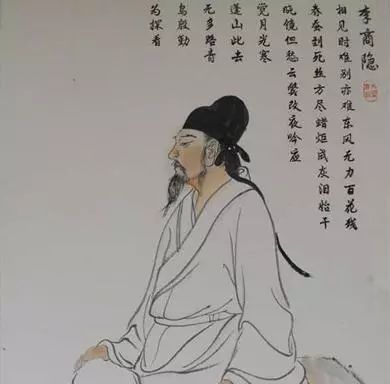 李商隐
相见时难别亦难东风无力百花残
春蚕到死丝方尽蜡炬成灰泪始干
晓镜但愁云鬓改夜吟应
觉月光寒
蓬山此去
无多路青
鸟殷勤
为探看